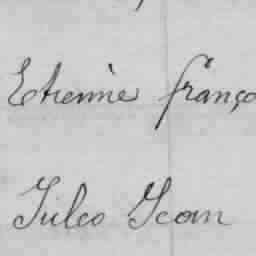 Etienne franço
Jules Jean